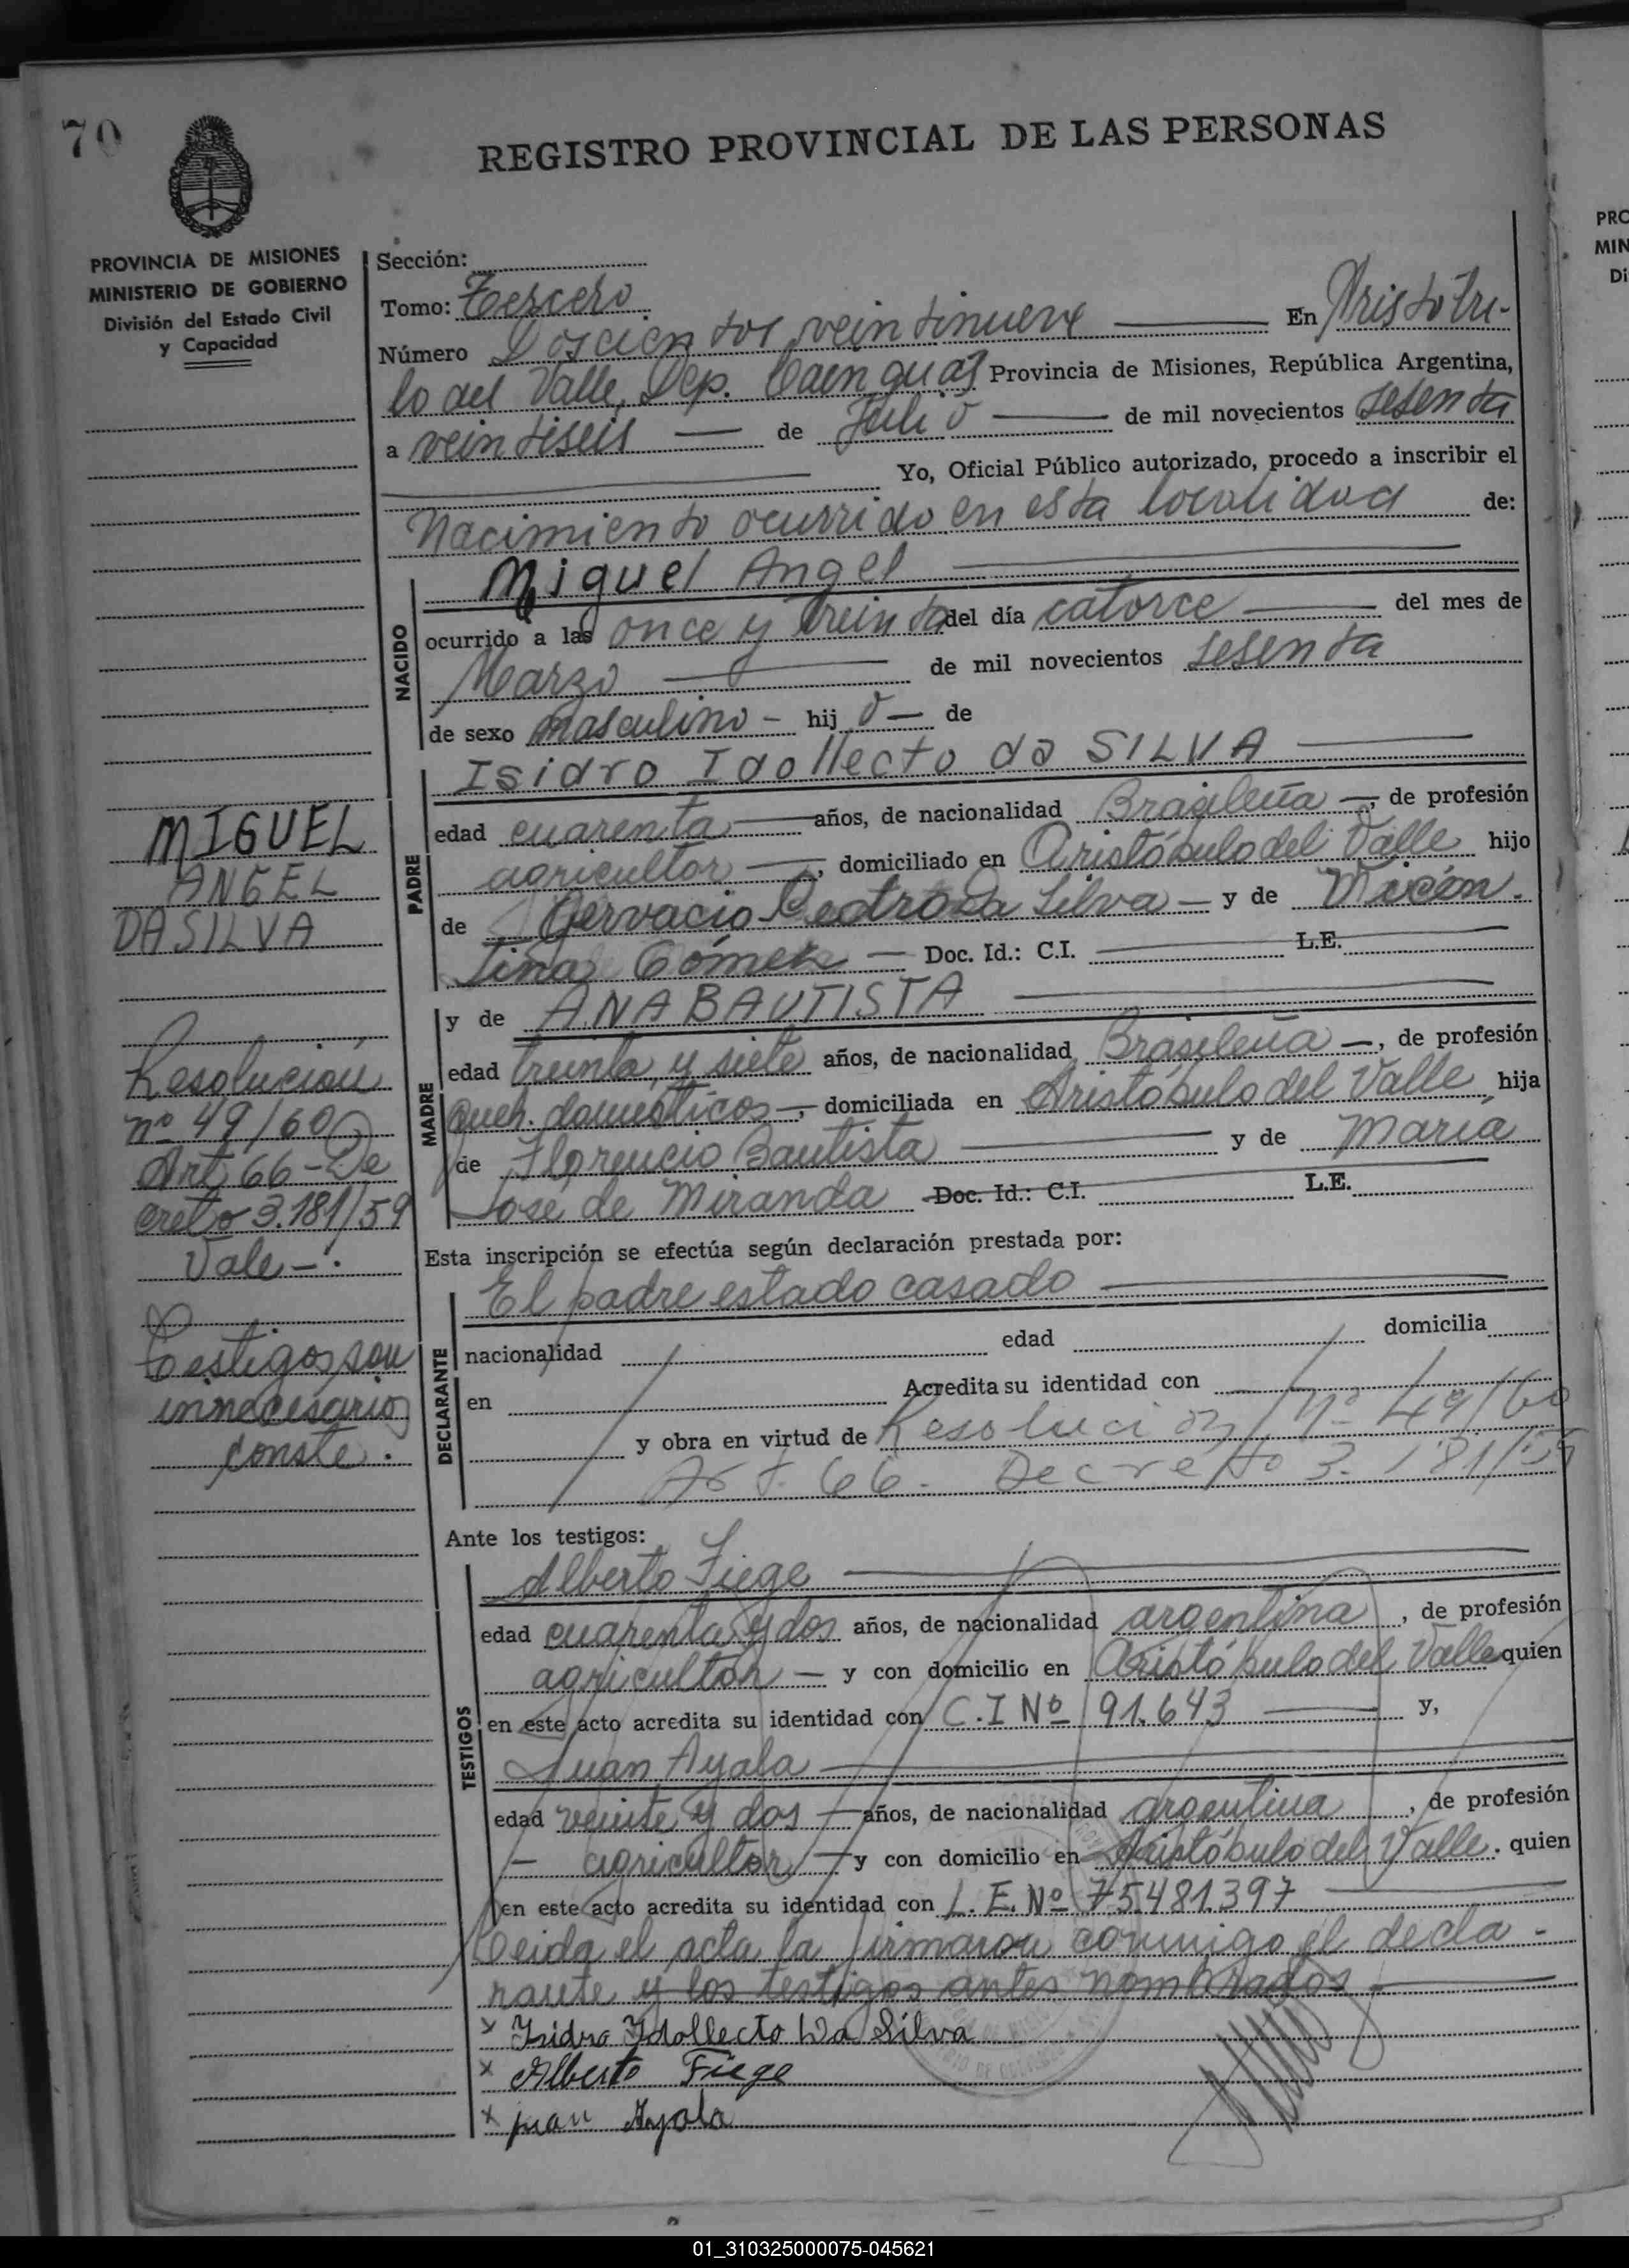 70
REGISTRO PROVINCIAL DE LAS PERSONAS
PROVINCIA DE MISIONES
MINISTERIO DE GOBIERNO
División del Estado Civil
y Capacidad
Sección:
Tomo: Tercero
Número Doscientos veintinueve — En Aristotu-
lo del Valle, Dep. Cainguas Provincia de Misiones, República Argentina,
a veintiseis — de Julio — de mil novecientos sesenta
Yo, Oficial Público autorizado, procedo a inscribir el
Nacimiento ocurrido en esta localidad de:
NACIDO
Miguel Angel
ocurrido a las once y treinta del día catorce — del mes de
Marzo — de mil novecientos sesenta
de sexo masculino - hij o — de
PADRE
Isidro Idollecto da SILVA
edad cuarenta — años, de nacionalidad Brasileña —, de profesión
agricultor —, domiciliado en Aristóbulo del Valle hijo
de Gervacio Pedro Da Silva — y de
Gómez — Doc. Id.: C.I. L.E.
MADRE
y de ANA BAUTISTA
edad treinta y siete años, de nacionalidad Brasileña —, de profesión
queh. domésticos —, domiciliada en Aristóbulo del Valle hija
de Florencio Bautista — y de María
José de Miranda Doc. Id.: C.I. L.E.
MIGUEL
ANGEL
DA SILVA
Resolución
nº 49/60
Art 66 - De
creto 3.181/59
Vale - .
Testigos son
innecesarios
conste .
Esta inscripción se efectúa según declaración prestada por:
DECLARANTE
El padre estado casado
nacionalidad edad domicilia
en Acredita su identidad con
y obra en virtud de Resolución Nº 49/60
Art. 66. Decreto 3.181/59
Ante los testigos:
TESTIGOS
Alberto Fiege
edad cuarenta y dos años, de nacionalidad argentina, de profesión
agricultor — y con domicilio en Aristóbulo del Valle quien
en este acto acredita su identidad con C.I Nº 91.643 — y,
Juan Ayala
edad veinte y dos — años, de nacionalidad argentina, de profesión
- agricultor — y con domicilio en Aristóbulo del Valle. quien
en este acto acredita su identidad con L.E. Nº 75.481.397
Leida el acta la firmaron conmigo el decla-
rante y los testigos antes nombrados
x Isidro Idollecto Da Silva
x Alberto Fiege
x juan Ayala
PRO
MIN
Di
01_310325000075-045621